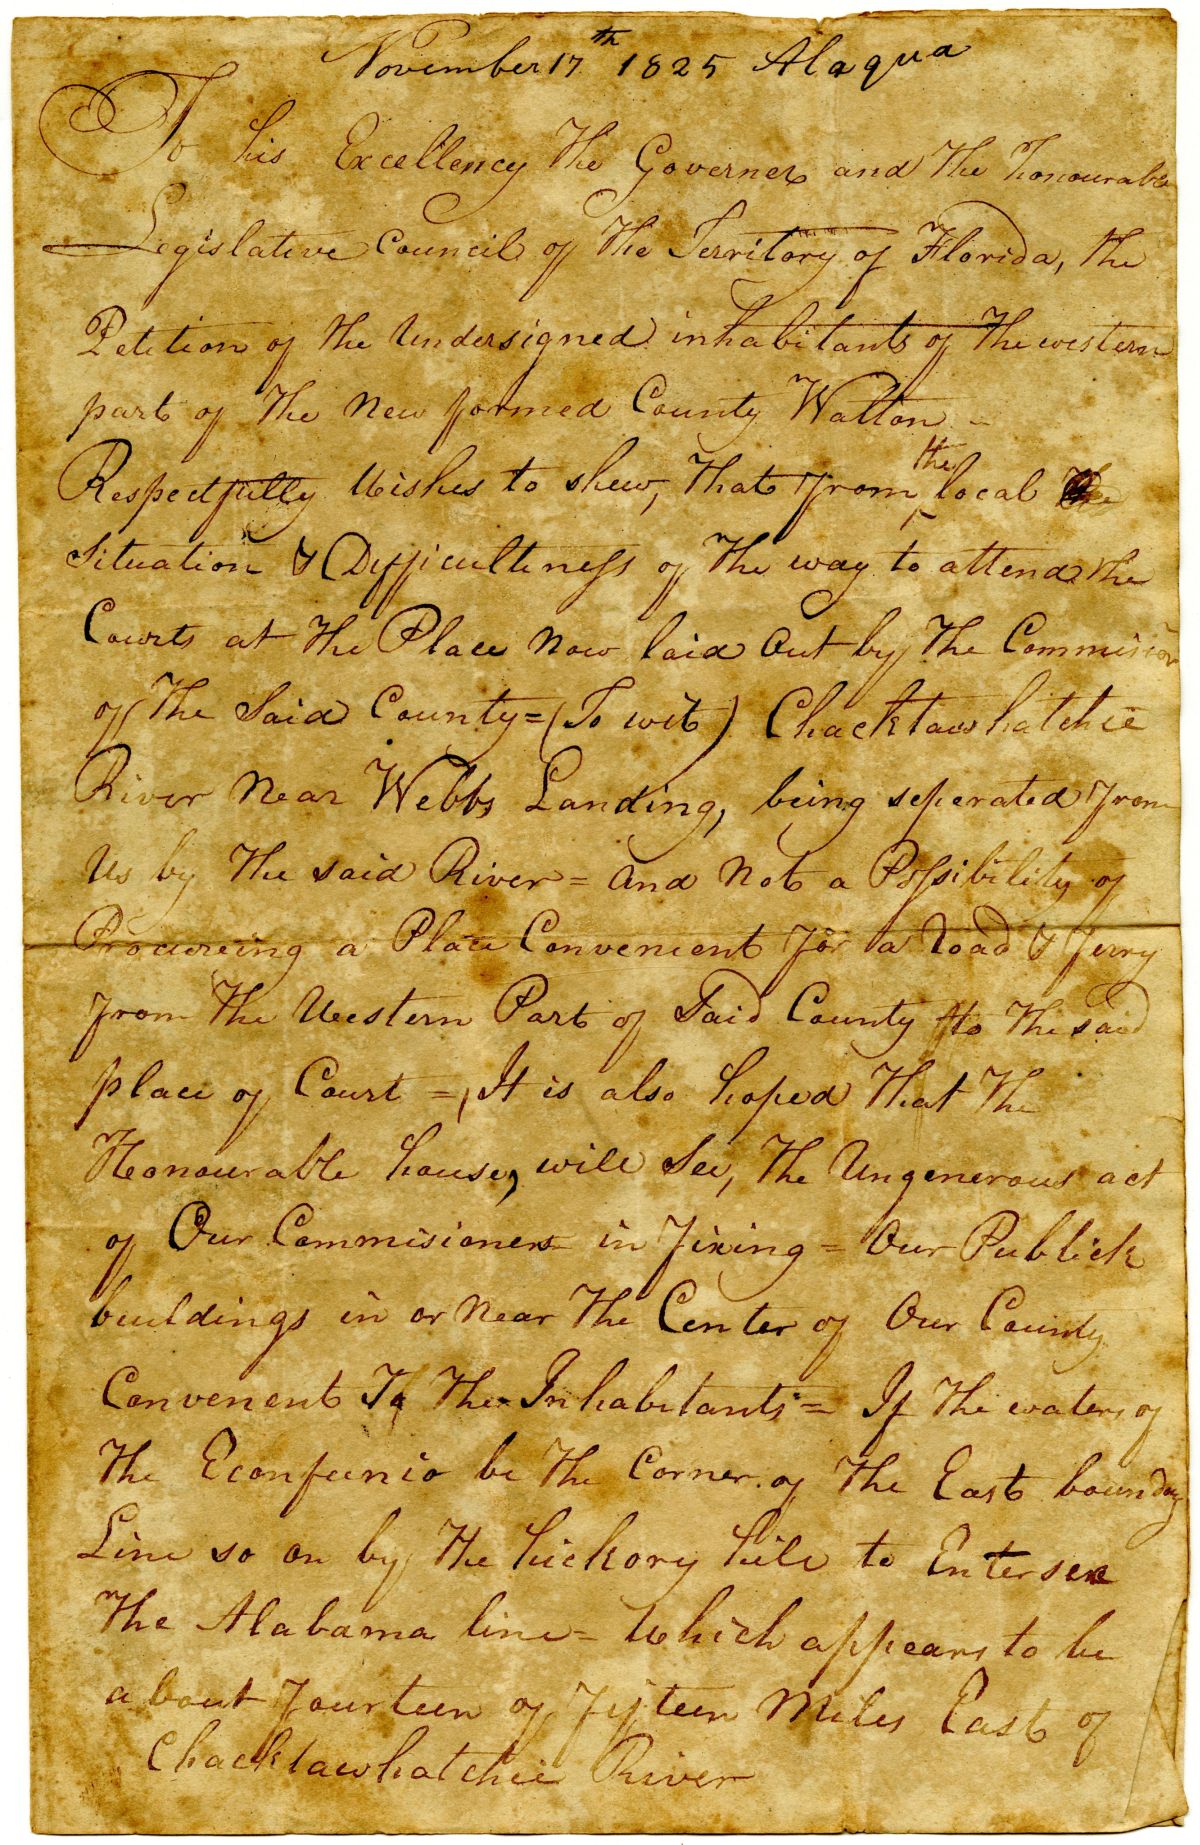 November 17th 1825 Alaqua
To his Excellency the Governer and the honourable
Legislative Council of the Territory of Florida, the
Petition of the Undersigned inhabitants of the western
part of the New formed County Walton
Respectfully Wishes to shew, that from the local
Situation & Difficultiness of the way to attend the
Courts at the Place Now laid Out by the Commision
of the Said County = (To wit) Chacktawhatchie
River Near Webbs Landing, being seperated from
Us by the said River = and Not a Possibility of
Procureing a Place Convenient for a road & ferry
from the Western Part of Said County to the said
place of Court =, It is also hoped that the
Honourable house, will See, the Ungenerous act
of Our Commisioners in Fixing = Our Publick
buildings in or Near the Center of Our County
Convenent To the Inhabitants = If the waters of
the Econfeenio be the Corner of the East boundary
Line so on by the hickory hill to Entersex
the Alabama line = Which appears to be
about fourteen of fifteen Miles East of
Chacktawhatchie River